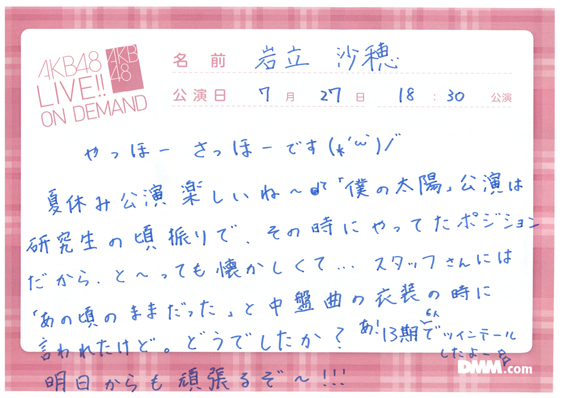 AKB48
LIVE!!
ON DEMAND
AKB
48
名前 岩立 沙穂
公演日 7月 27日 18:30 公演
やっほー さっほーです(*'ω')ノ
夏休み公演 楽しいね〜♪「僕の太陽」公演は
研究生の頃振りで、その時にやってたポジション
だから、と〜っても懐かしくて... スタッフさんには
「あの頃のままだった」と中盤曲の衣装の時に
言われたけど。どうでしたか?
あ!13期でツインテール
したよー
明日からも頑張るぞ〜!!!
DMM.com